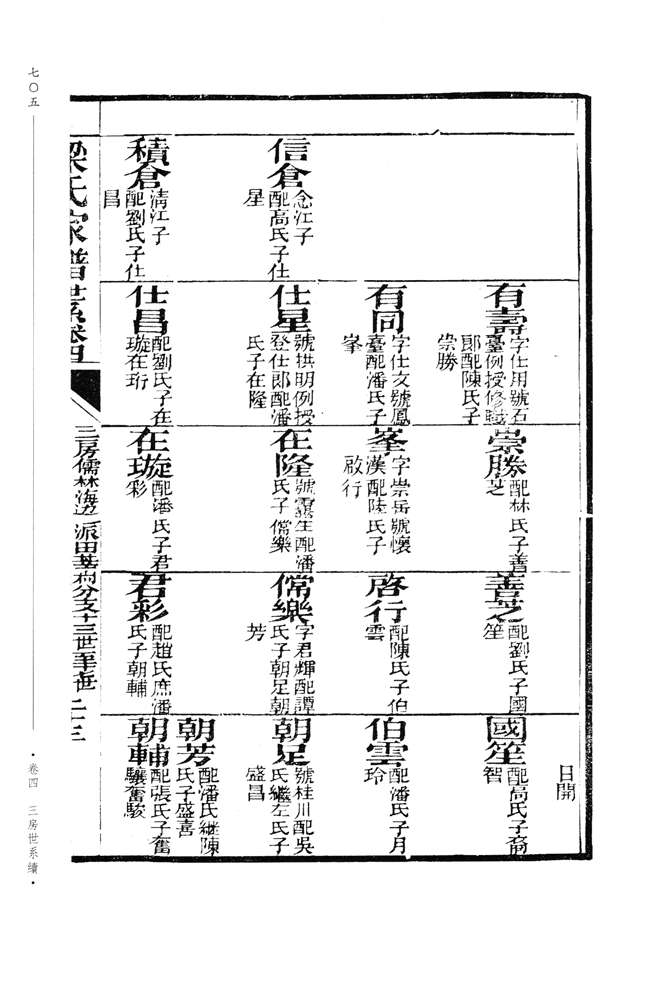 日開
信倉
念江子
配高氏子仕
星
積倉
清江子
配劉氏子仕
昌
有壽
字仕用號五
臺例授修職
郎配陳氏子
崇勝
有同
字仕文號鳳
臺配潘氏子
峯
仕星
號拱明例授
登仕郎配潘
氏子在隆
仕昌
配劉氏子在
璇在珩
崇勝
配林氏子善
芝
峯
字崇岳號懷
漢配陸氏子
啟行
在隆
氏子儋樂
在璇
配潘氏子君
彩
善芝
配劉氏子國
笙
啓行
配陳氏子伯
雲
儋樂
字君輝配譚
氏子朝足朝
芳
君彩
配趙氏庶潘
氏子朝輔
國笙
配高氏子裔
智
伯雲
配潘氏子月
玲
朝足
號桂川配吳
氏繼左氏子
盛昌
朝芳
配潘氏繼陳
氏子盛喜
朝輔
配張氏子奮
驤奮駿
梁氏家譜世系卷四
三房儒林海邊派田基
分支十三世至
七〇五
·卷四 三房世系續·